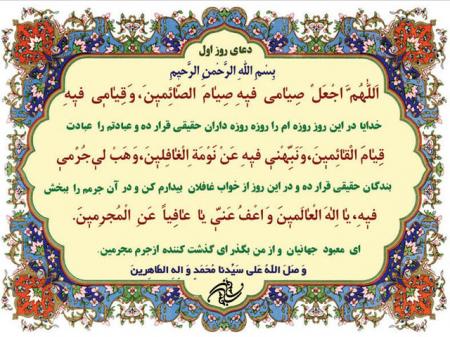 دعای روز اول
بِسْمِ اللهِ الرَّحْمنِ الرَّحیمِ
اَللّهُمَّ اجْعَلْ صِیٰامی فیهِ صِیٰامَ الصّٰائِمینَ، وَ قِیٰامٖی فیٖهِ
خدایا در این روز روزه ام را روزه روزه داران حقیقی قرار ده و عبادتم را عبادت
قِیٰامَ الْقٰائِمٖینَ، وَ نَبِّهْنٖی فیٖهِ عَنْ نَوْمَةِ الْغٰافِلٖینَ، وَهَبْ لٖی جُرْمٖی
بندگان حقیقی قرار ده و در این روز از خواب غافلان بیدارم کن و در آن جرمم را ببخش
فیٖهِ، یٰا اِلٰهَ الْعٰالَمیٖنَ وَ اعْفُ عَنّیٖ یٰا عٰافِیاً عَنِ الْمُجرِمیٖنَ.
ای معبود جهانیان و از من بگذر ای گذشت کننده ازجرم مجرمین.
وَ صَلَّ اللهُ عَلی سَیِّدِنا مُحَمَّدٍ وَ الِهِ الطّاهِرینَ